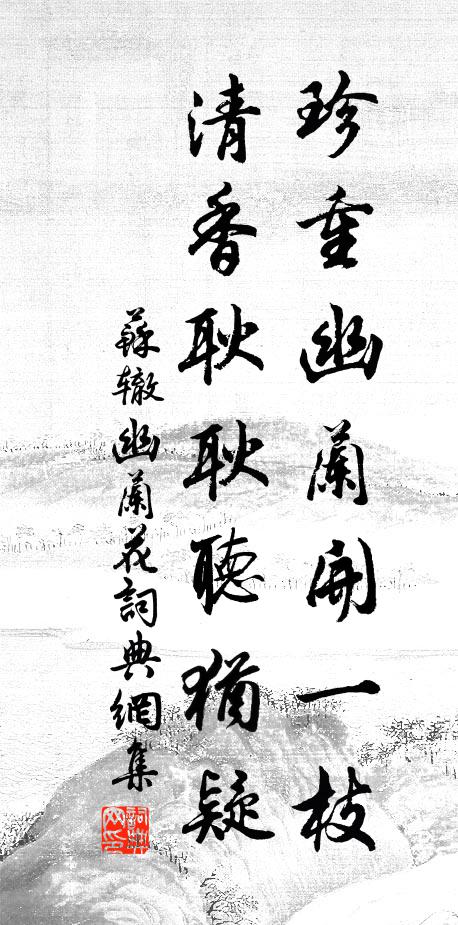 珍重幽蘭開一枝
清香耿耿聽猶疑
蘇轍幽蘭花詞典網集